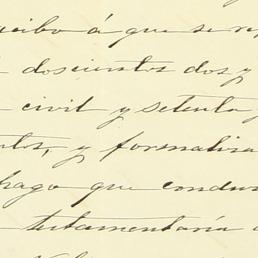 recibo á que se re
doscientos dos y
civil y setenta
y formaliza
hago que condu
testamentaría